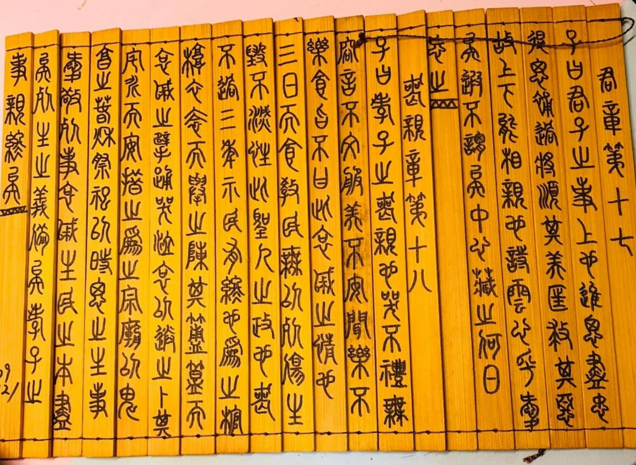 君章第十七
子曰君子之事上也進思盡忠
退思補過將順其美匡救其惡
故上下能相親也詩雲心乎愛
矣遐不謂矣中心藏之何日
忘之
喪親章第十八
子曰孝子之喪親也哭不禮無
容言不文服美不安聞樂不
樂食旨不甘此哀戚之情也
三日而食教民無以死傷生
毀不滅性此聖人之政也喪
不過三年示民有終也為之棺
槨衣衾而舉之陳其簠簋而
哀戚之擗踊哭泣哀以送之卜其
宅兆而安措之為之宗廟以鬼
享之春秋祭祀以時思之生事
愛敬死事哀戚生民之本盡
矣死生之義備矣孝子之
事親終矣